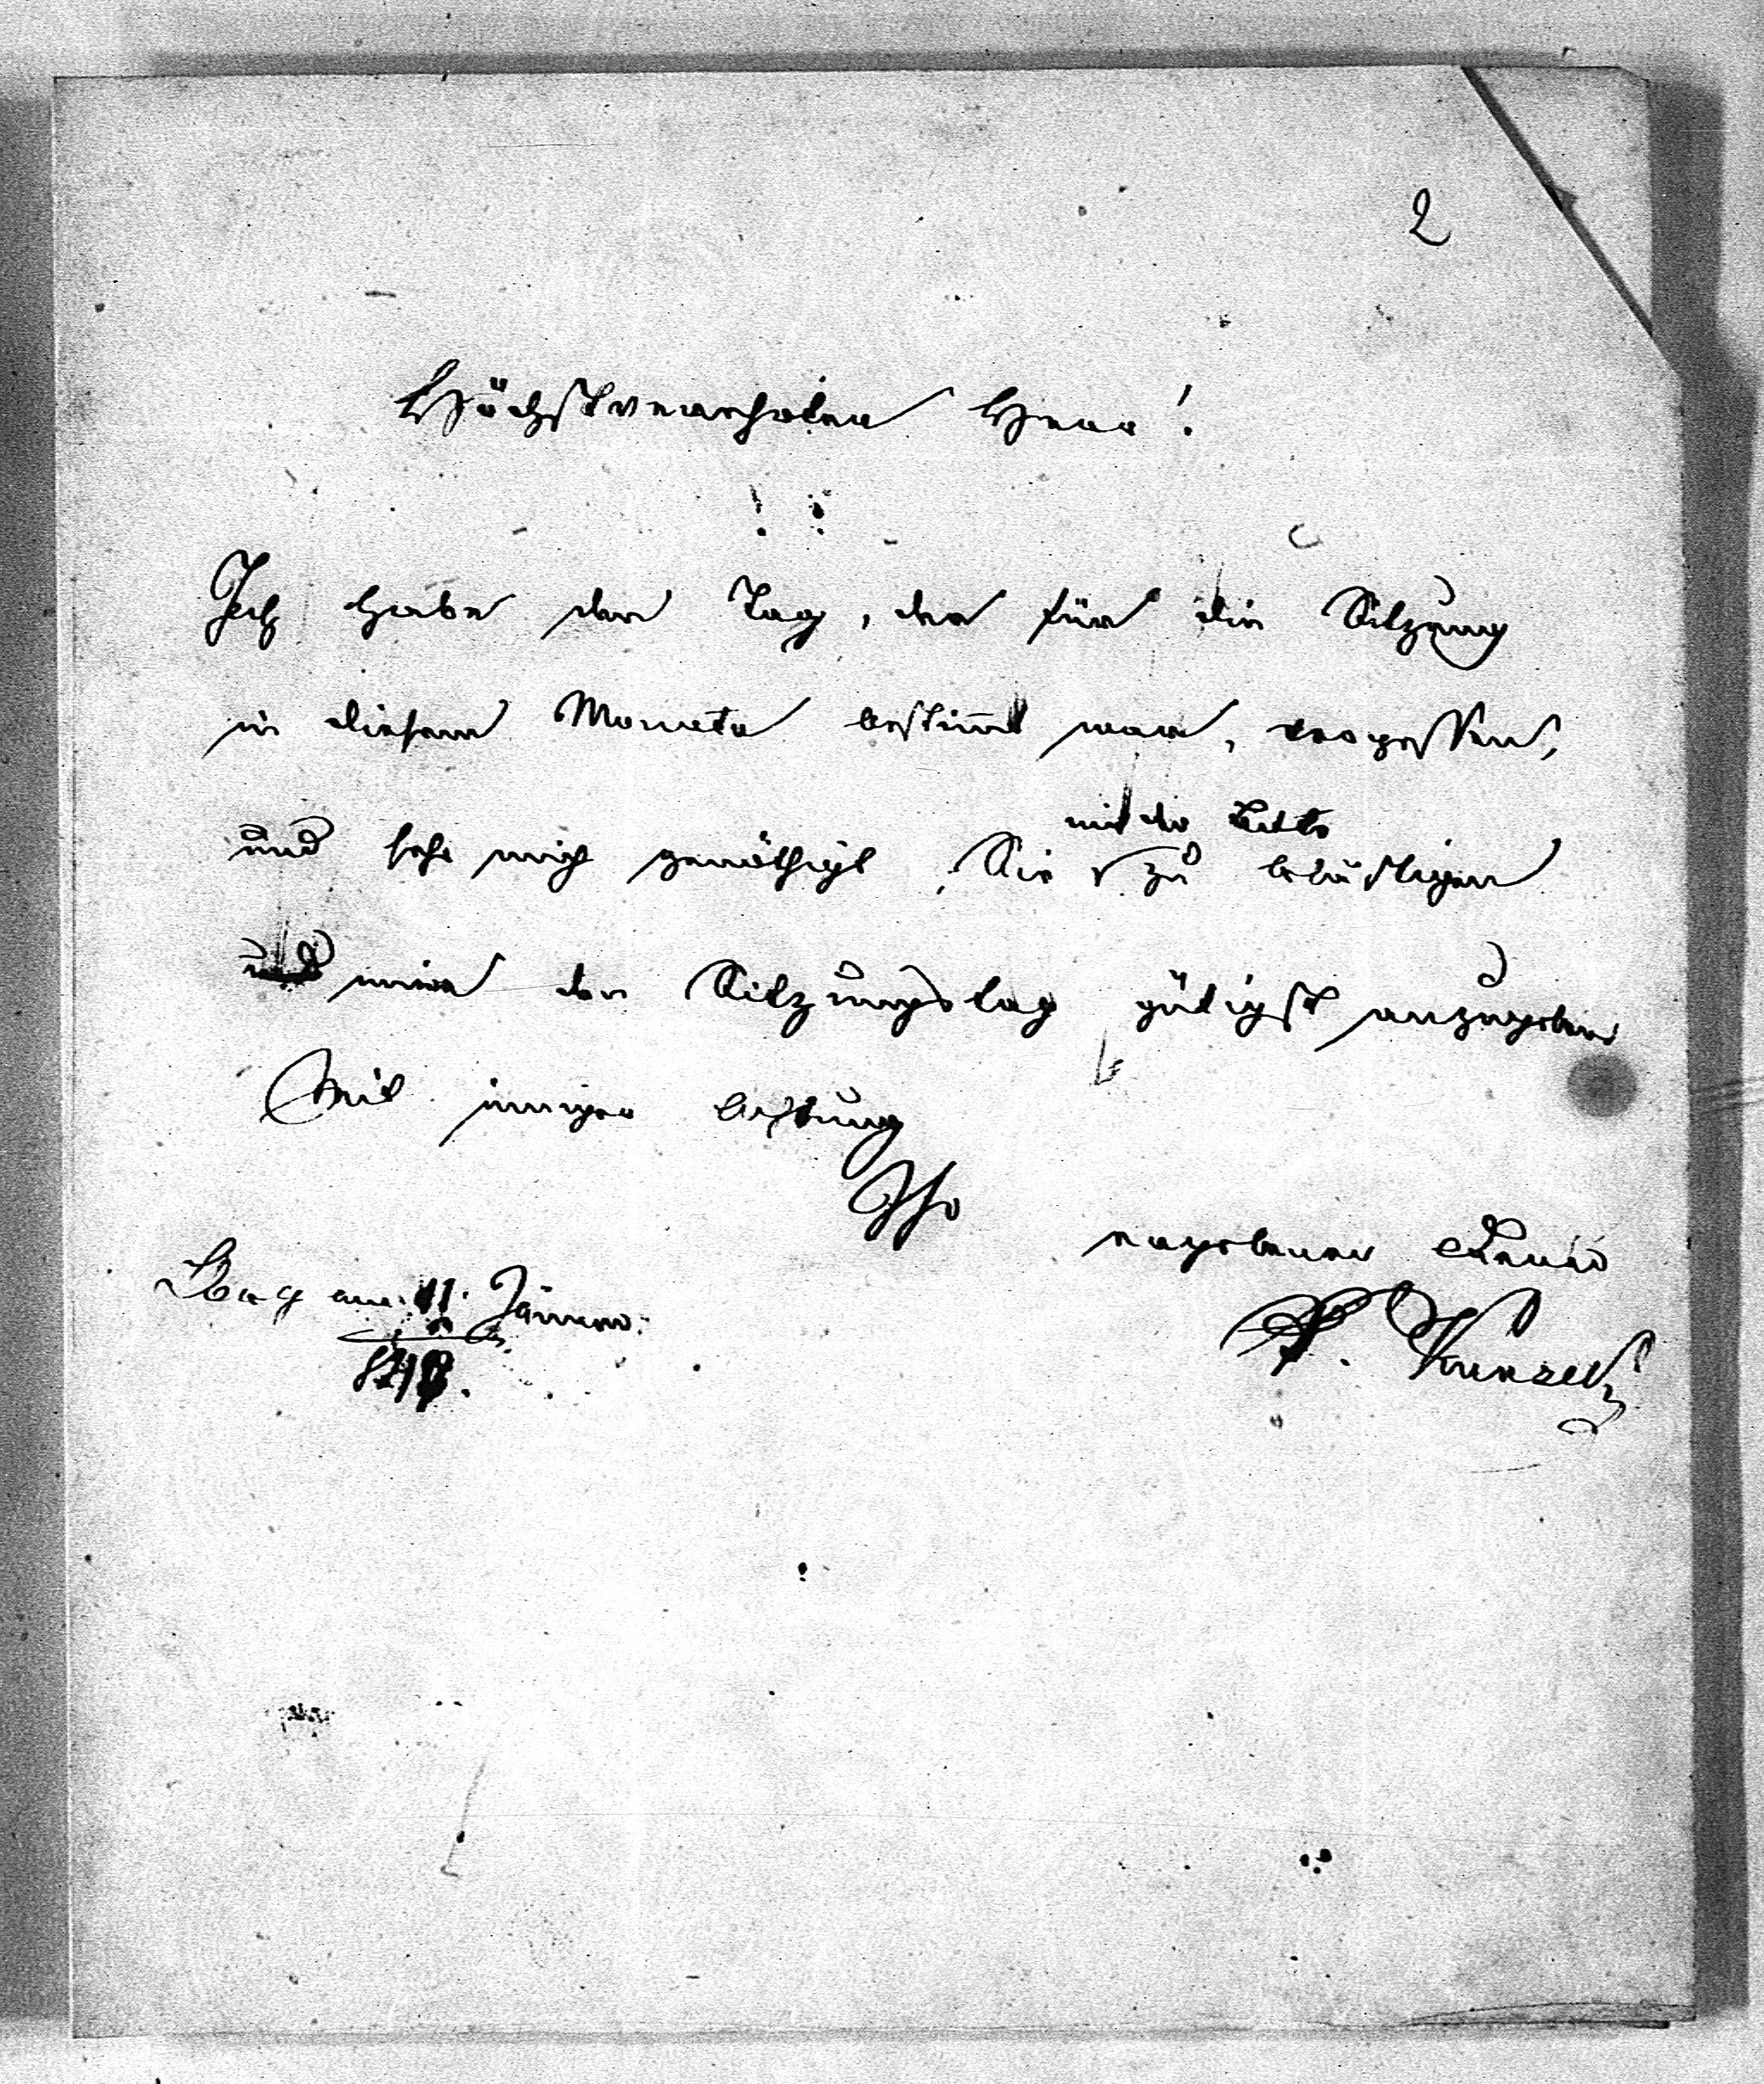 2
Höchstverehrter Herr!
Ich habe den Tag, der für die Sitzung
in diesem Monate bestim̄t war, vergessen,
mit der Bitte
und sehe mich genöthigt, Sie zu belästigen
und mir den Sitzungstag gütigst anzugeben
Mit inniger Achtung
Ihr
ergebener
am 11. Jänner
P. Kunzek